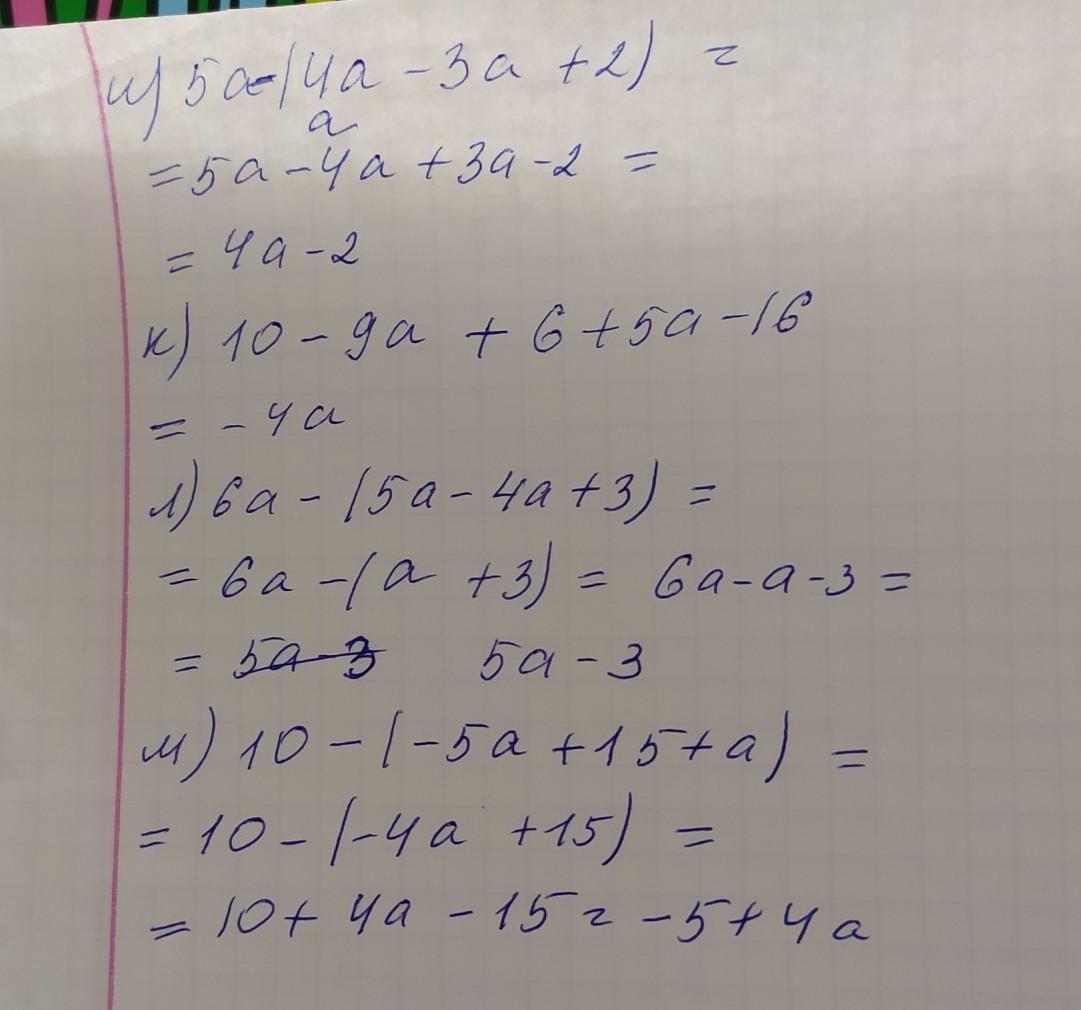 и) 5a-(4a - 3a + 2) =
a
= 5a - 4a + 3a - 2 =
= 4a - 2
к) 10 - 9a + 6 + 5a - 16
= - 4a
л) 6a - (5a - 4a + 3) =
= 6a - (a + 3) = 6a - a - 3 =
= 5a - 3 5a - 3
м) 10 - (-5a + 15 + a) =
= 10 - (-4a + 15) =
= 10 + 4a - 15 = -5 + 4a